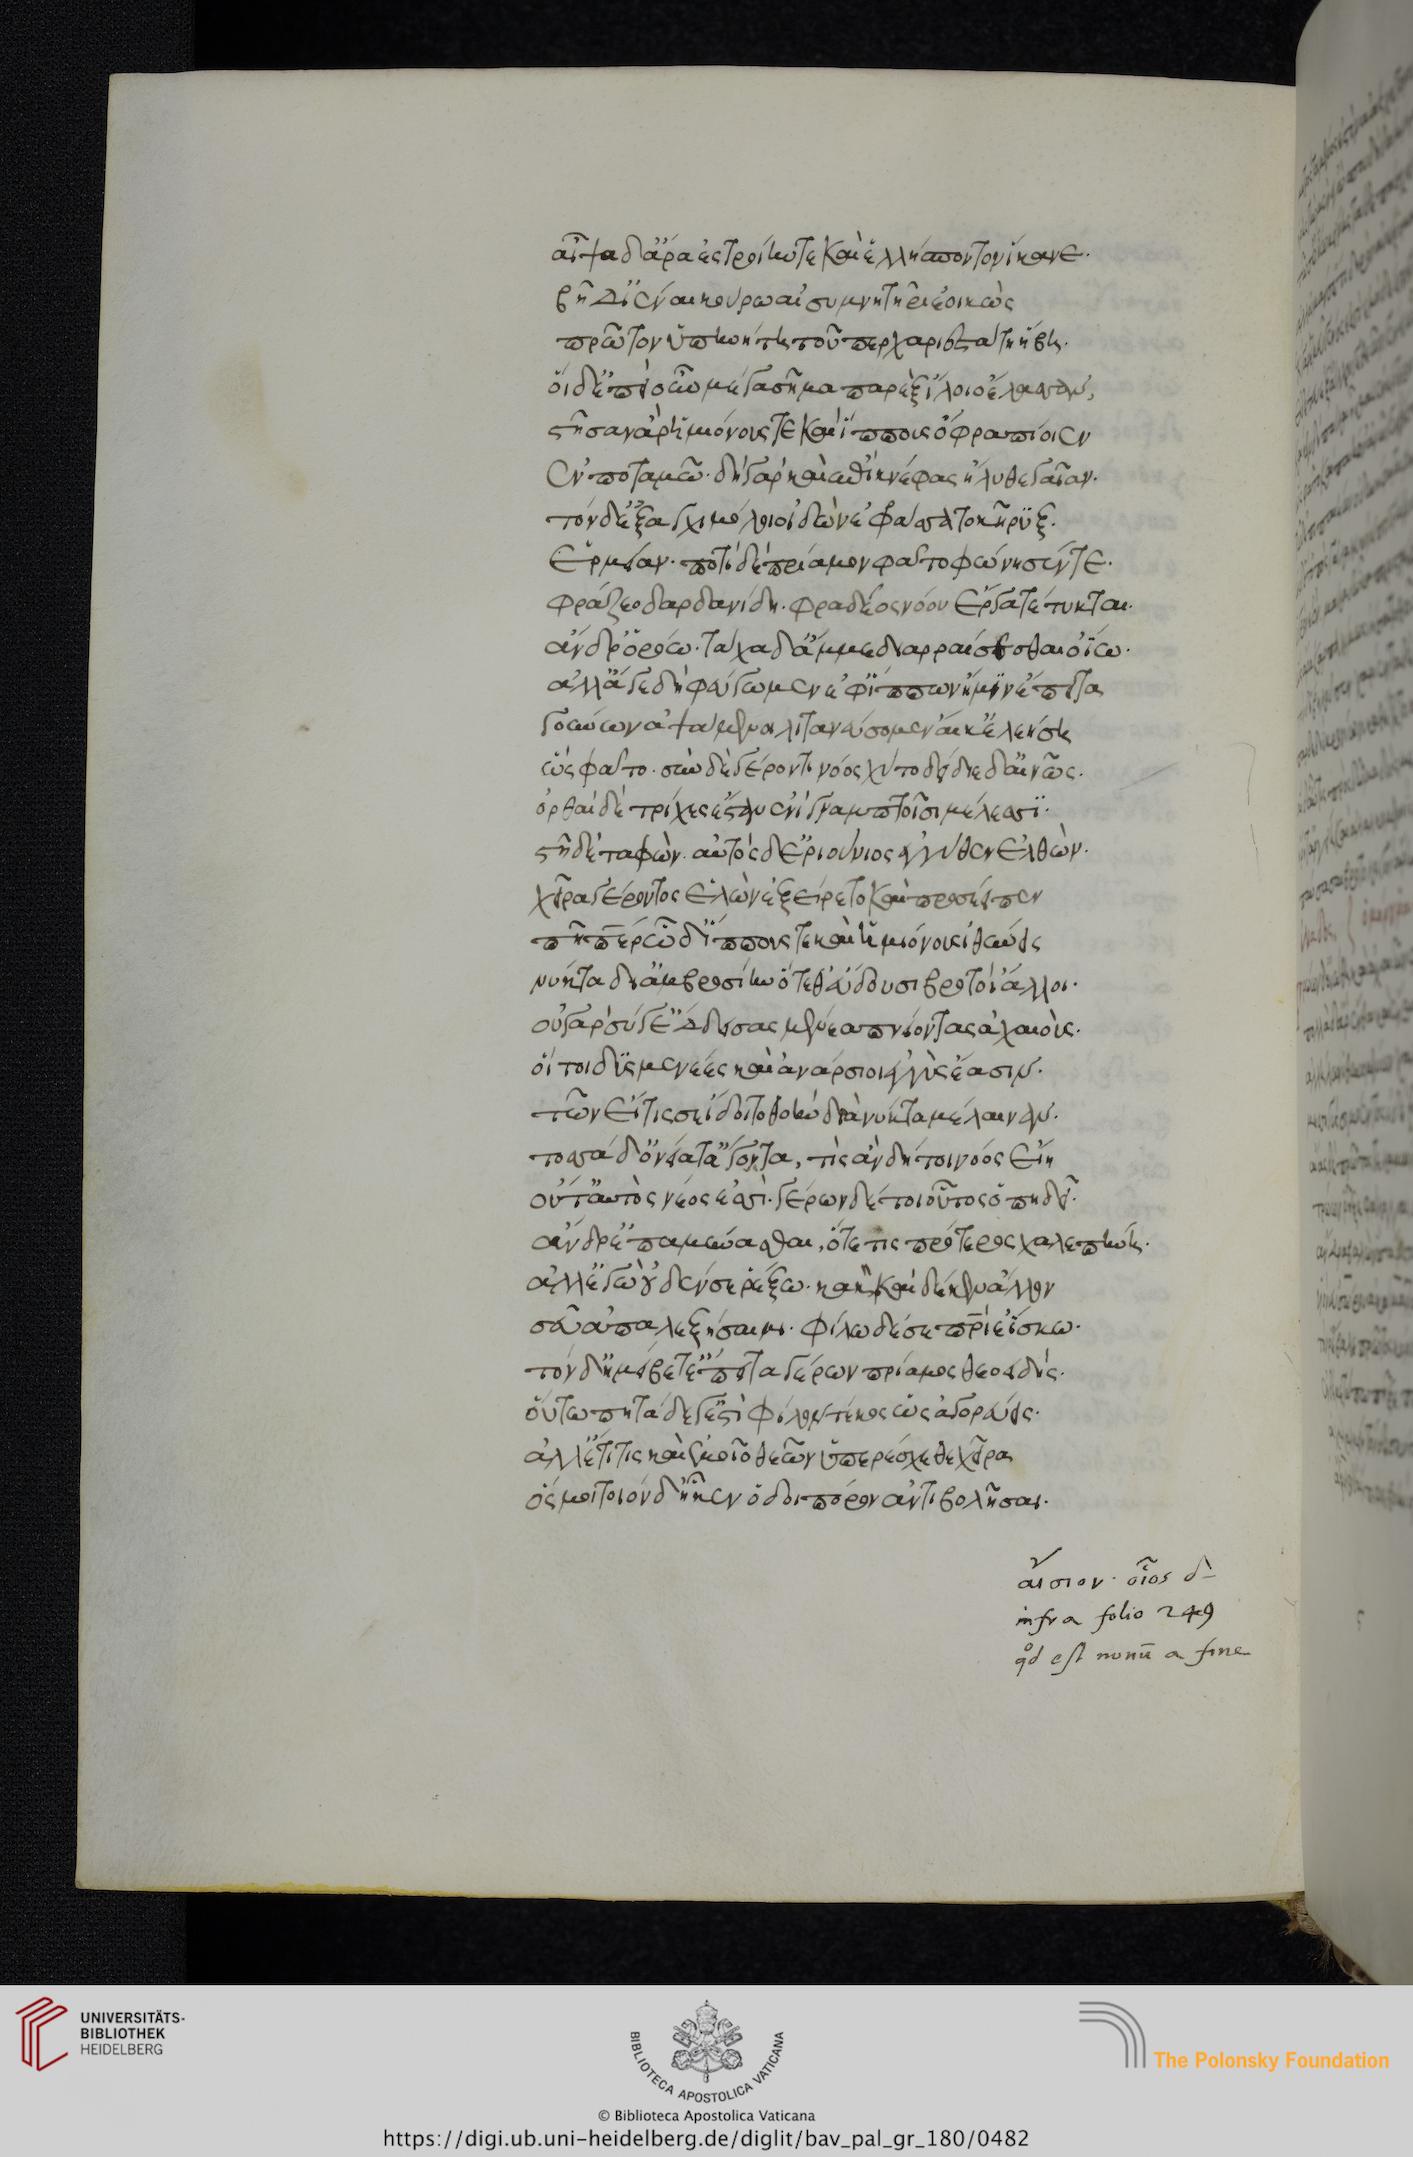 αἶψα δ' ἄρα ἐς τροίην τε καὶ ἑλλήσποντον ἵκανε.
βῆ δ' ἰέναι κούρω αἰσυμνητῆρι ἐοικὼς
πρῶτον ὑπηνήτη τοῦ περ χαριεστάτη ἥβη.
οἱ δ' ἐπεὶ οὖν μέγα σῆμα παρὲξ ἴλοιο ἔλασσαν,
στῆσαν ἄρ' ἡμιόνους τε καὶ ἵππους ὄφρα πίοιεν
ἐν ποταμῶ. δὴ γὰρ καὶ ἐπὶ κνέφας ἤλυθε γαῖαν.
τὸν δ' ἐξ ἀγχιμόλοιο ἰδὼν ἐφράσσατο κῆρυξ.
ἑρμείαν. ποτὶ δὲ πρίαμον φάτο φώνησέν τε.
φράζεο δαρδανίδη. φραδέος νόου ἔργα τέτυκται.
ἄνδρ' ὁρόω. τάχα δ' ἄμμε διαρραίσεσθαι ὀΐω.
ἀλλ' ἄγε δὴ φεύγωμεν ἐφ' ἵππων ἤ μιν ἔπειτα
γούνων ἁψάμενοι λιτανεύσομεν αἴ κ' ἐλεήση
ὣς φάτο. σὺν δὲ γέροντι νόος χύτο δείδιε δ' αἰνῶς.
ὀρθαὶ δὲ τρίχες ἔσταν ἐνὶ γναμπτοῖσι μέλεσσι.
στῆ δὲ ταφών. αὐτὸς δ' ἐριούνιος ἐγγύθεν ἐλθὼν.
χεῖρα γέροντος ἑλὼν ἐξείρετο καὶ προσέειπεν
πῆ πάτερ ὧδ' ἵππους τε καὶ ἡμιόνους ἰθύνεις
νύκτα δι' ἀμβροσίην ὅτε θ' εὕδουσι βροτοὶ ἄλλοι.
οὐ γὰρ σύ γ' ἔδδεισας μένεα πνείοντας ἀχαιοὺς.
οἵ τοι δυσμενέες καὶ ἀνάρσιοι ἐγγὺς ἔασιν.
τῶν εἴ τις σε ἴδοι τοθὴν διὰ νύκτα μέλαιναν.
τοσσάδ' ὀνείατ' ἄγοντα, τίς ἂν δή τοι νόος εἴη
οὔτ' αὐτὸς νέος ἐσσὶ. γέρων δέ τοι οὗτος ὀπηδεῖ.
ἄνδρ' ἐπαμύνασθαι, ὅτε τις πρότερος χαλεπήνη.
ἀλλ' ἐγὼ οὐδέν σε ῥέξω κακὰ. καὶ δέ κεν ἄλλον
σεῦ ἀπαλεξήσαιμι. φίλω δέ σε πατρὶ ἐΐσκω.
τὸν δ' ἠμείβετ' ἔπειτα γέρων πρίαμος θεοειδής.
οὕτω πη τάδε γ' ἐστὶ φίλον τέκος ὡς ἀγορεύεις.
ἀλλ' ἔτι τις καὶ ἐμοῖο θεῶν ὑπερέσχεθε χεῖρα
ὅς μοι τοιόνδ' ἧκεν ὁδοιπόρον ἀντιβολῆσαι.
αἴσιον. οἷος δὴ
infra folio 249
qd est nonū a fine
UNIVERSITÄTS-
BIBLIOTHEK
HEIDELBERG
BIBLIOTECA APOSTOLICA VATICANA
The Polonsky Foundation
© Biblioteca Apostolica Vaticana
https://digi.ub.uni-heidelberg.de/diglit/bav_pal_gr_180/0482